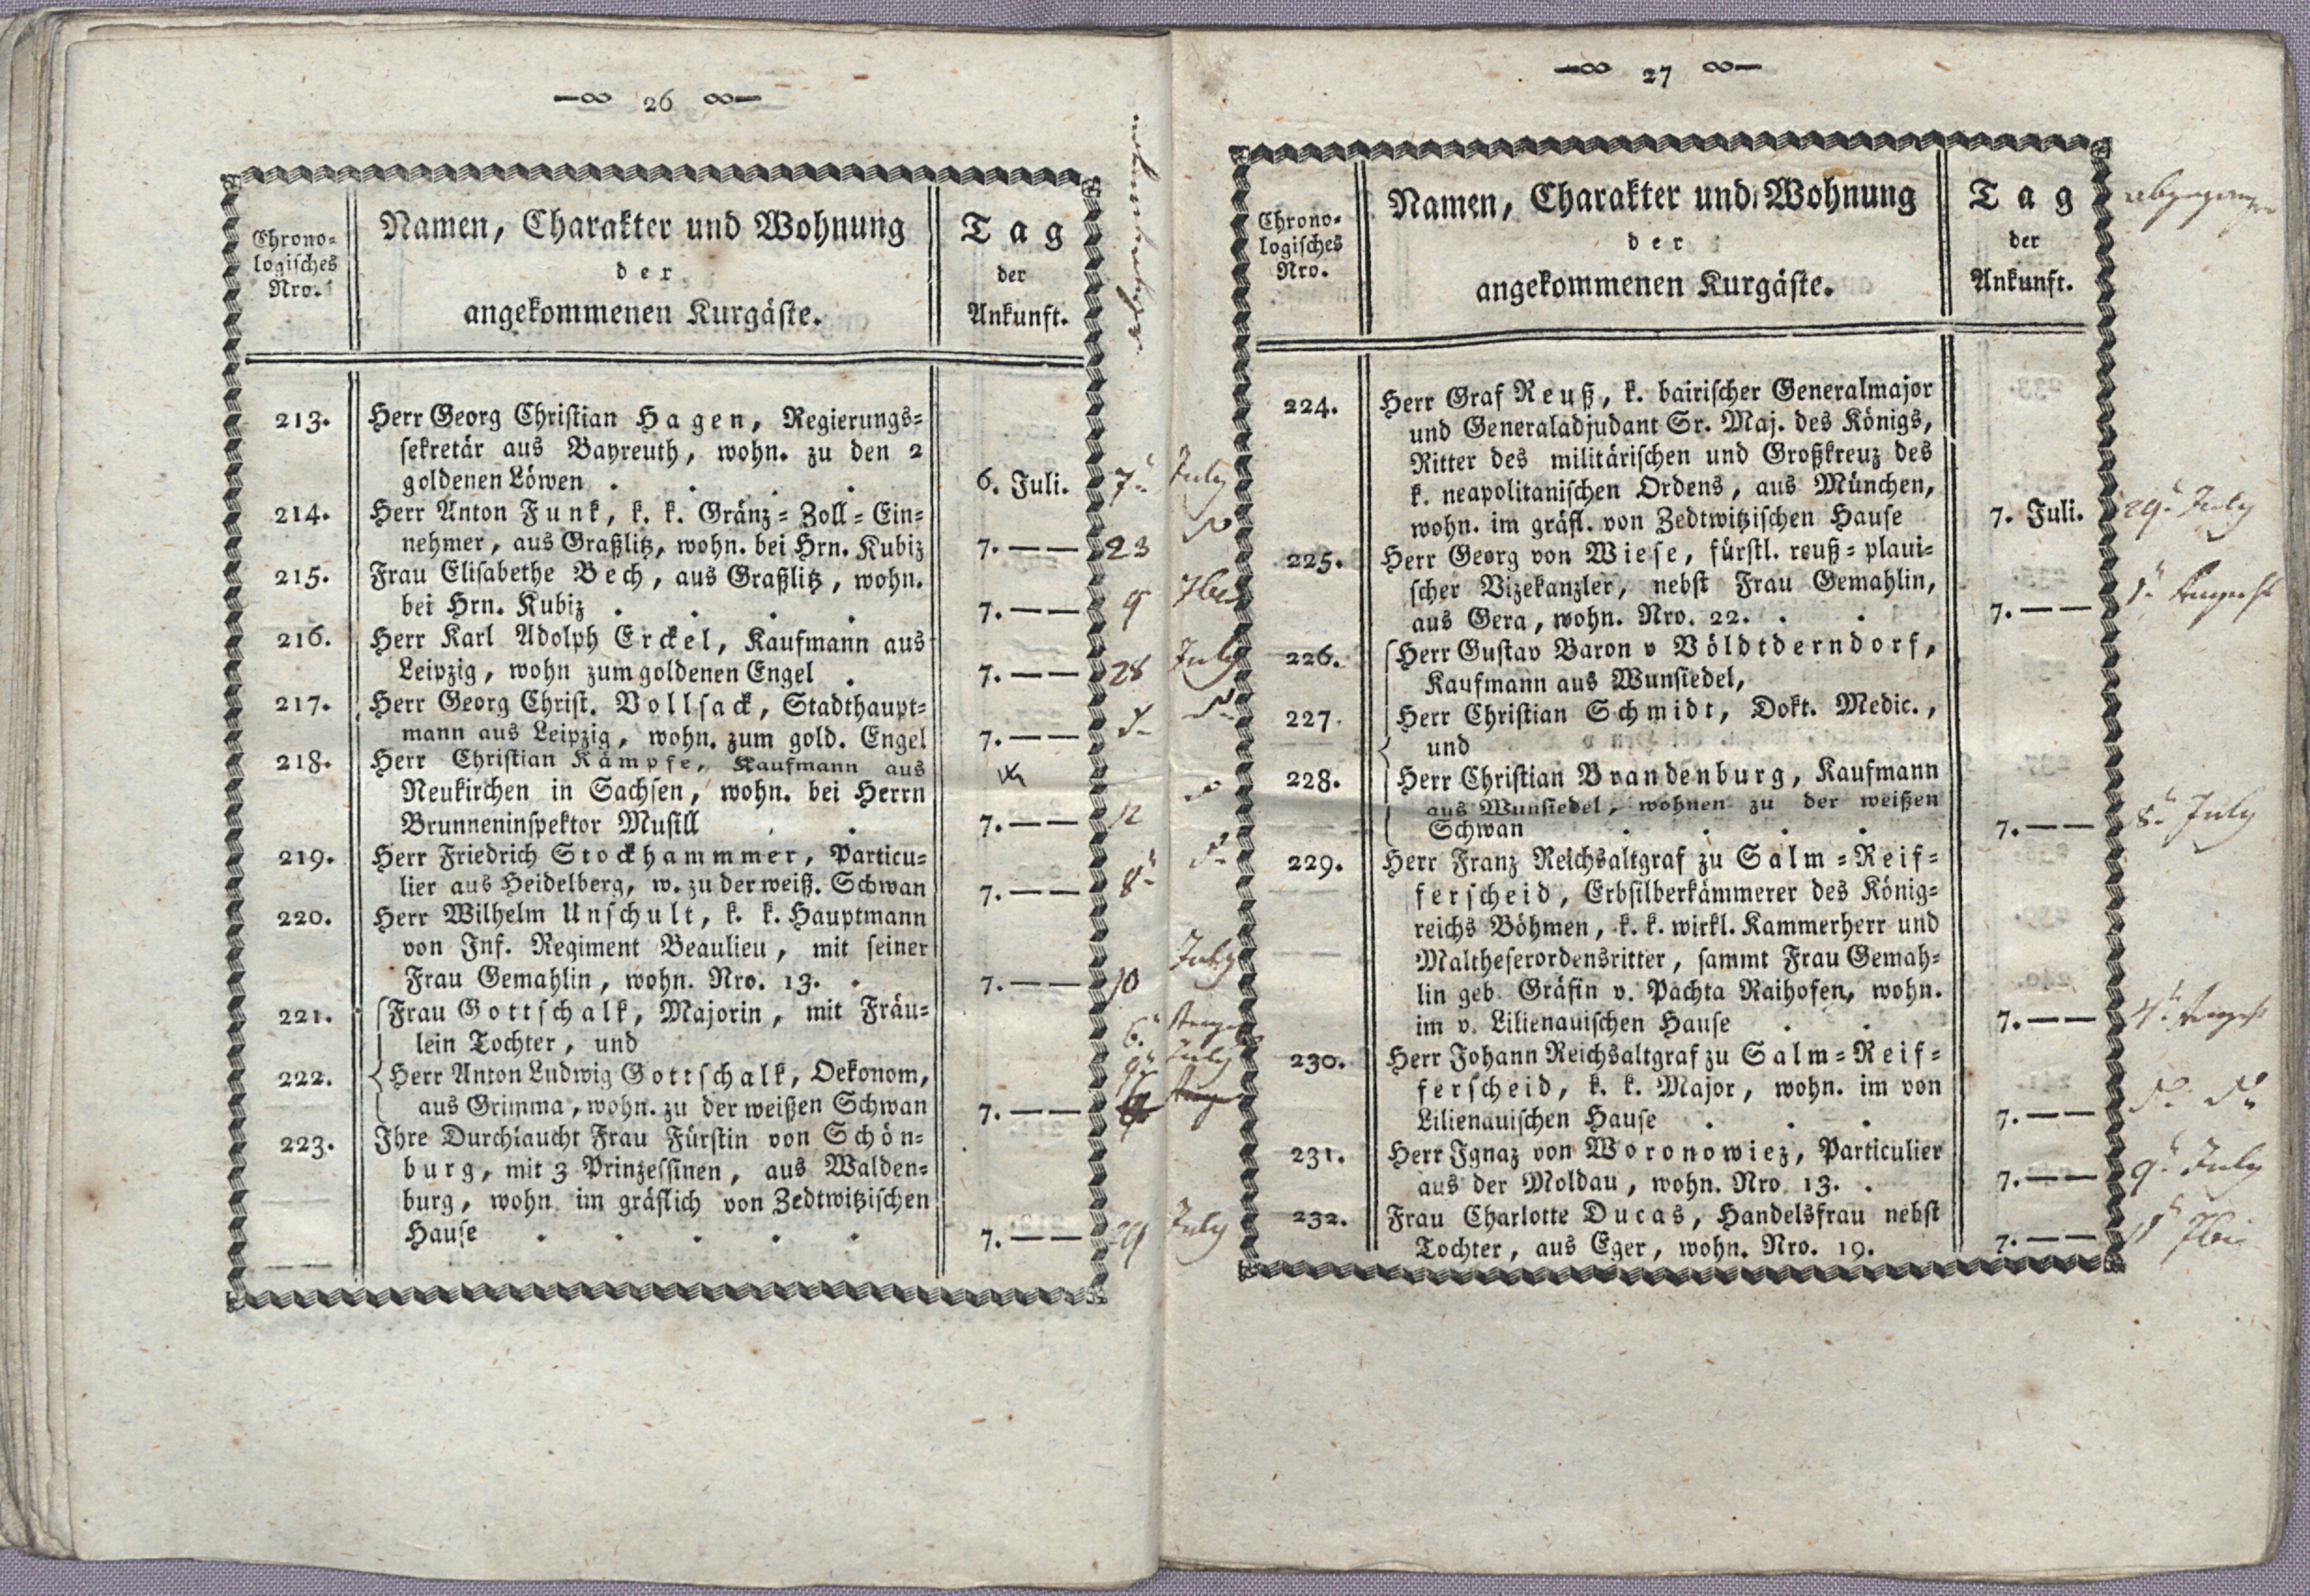 26
Chrono-
logisches
Nro.
Namen, Charakter und Wohnung
der
angekommenen Kurgäste.
Tag
der
Ankunft.
213. Herr Georg Christian Hagen, Regierungs-
sekretär aus Bayreuth, wohn. zu den 2
goldenen Löwen . . . . 6. Juli. 7 July
214. Herr Anton Funk, k. k. Gränz-Zoll-Ein-
nehmer, aus Graßlitz, wohn. bei Hrn. Kubiz 7. — — 23
215. Frau Elisabethe Bech, aus Graßlitz, wohn.
bei Hrn. Kubiz . . . . 7. — — 9 7ber
216. Herr Karl Adolph Erckel, Kaufmann aus
Leipzig, wohn zum goldenen Engel . 7. — — 28 July
217. Herr Georg Christ. Vollsack, Stadthaupt-
mann aus Leipzig, wohn. zum gold. Engel 7. — —
218. Herr Christian Kämpfe, Kaufmann aus
Neukirchen in Sachsen, wohn. bei Herrn
Brunneninspektor Musill . . 7. — — 12
219. Herr Friedrich Stockhammmer, Particu-
lier aus Heidelberg, w. zu der weiß. Schwan 7. — — 8
220. Herr Wilhelm Unschult, k. k. Hauptmann
von Inf. Regiment Beaulieu, mit seiner
Frau Gemahlin, wohn. Nro. 13. . 7. — — 10 July
221. Frau Gottschalk, Majorin, mit Fräu-
lein Tochter, und 6
222. Herr Anton Ludwig Gottschalk, Oekonom, 9 July
aus Grimma, wohn. zu der weißen Schwan 7. — —
223. Ihre Durchlaucht Frau Fürstin von Schön-
burg, mit 3 Prinzessinen, aus Walden-
burg, wohn. im gräflich von Zedtwitzischen
Hause . . . . . 7. — — 29 July
27
Chrono-
logisches
Nro.
Namen, Charakter und Wohnung
der
angekommenen Kurgäste.
Tag
der
Ankunft.
abgegangen
224. Herr Graf Reuß, k. bairischer Generalmajor
und Generaladjudant Sr. Maj. des Königs,
Ritter des militärischen und Großkreuz des
k. neapolitanischen Ordens, aus München,
wohn. im gräfl. von Zedtwitzischen Hause 7. Juli. 29 July
225. Herr Georg von Wiese, fürstl. reuß-plaui-
scher Vizekanzler, nebst Frau Gemahlin,
aus Gera, wohn. Nro. 22. . . 7. — — 1 August
226. Herr Gustav Baron v Völdtderndorf,
Kaufmann aus Wunsiedel,
227. Herr Christian Schmidt, Dokt. Medic.,
und
228. Herr Christian Brandenburg, Kaufmann
aus Wunsiedel, wohnen zu der weißen
Schwan . . . . 7. — — 8 July
229. Herr Franz Reichsaltgraf zu Salm-Reif-
ferscheid, Erbsilberkämmerer des König-
reichs Böhmen, k. k. wirkl. Kammerherr und
Maltheserordensritter, sammt Frau Gemah-
lin geb. Gräfin v. Pachta Raihofen, wohn.
im v. Lilienauischen Hause . . 7. — — 4 August
230. Herr Johann Reichsaltgraf zu Salm-Reif-
ferscheid, k. k. Major, wohn. im von
Lilienauischen Hause . . . 7. — —
231. Herr Ignaz von Woronowiez, Particulier
aus der Moldau, wohn. Nro. 13. . 7. — — 9 July
232. Frau Charlotte Ducas, Handelsfrau nebst
Tochter, aus Eger, wohn. Nro. 19. 7. — —